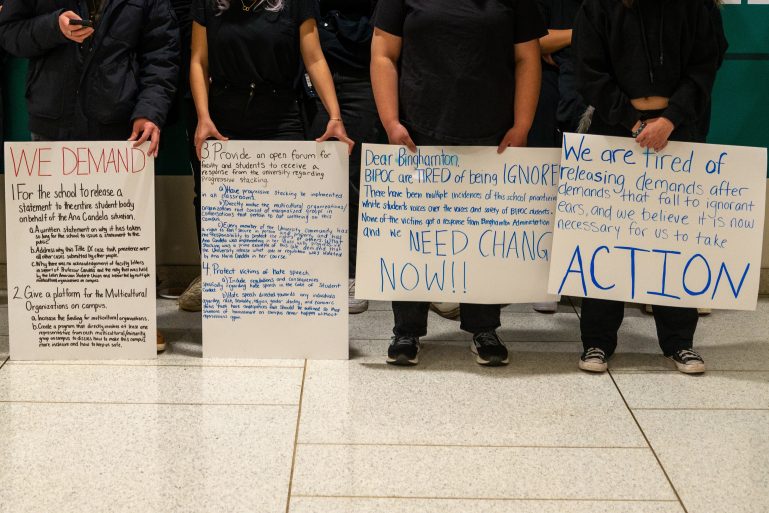 WE DEMAND
1 For the school to release a
statement to the entire student body
on behalf of the Ana Candela situation.
a. A written statement on why it has taken
so long for the school to issue a statement to the
public
b. Address why this Title IX case, took precedence over
all other cases submitted by other people.
c. Why there was no acknowledgement of faculty letters
in support of Professor Candela and the rally that was held
by the Latin American Student Union and submitted by multiple
multicultural organizations on campus.
2. Give a platform for the Multicultural
Organizations on campus.
a. Increase the funding for multicultural organizations.
b. Create a program that directly makes at least one
representative from each multicultural/minority
group on campus to discuss how to make this campus
more inclusive and how to keep us safe.
3 Provide an open forum for
faculty and Students to receive a
response from the university regarding
progressive stacking.
a) Have progressive stacking be implemented
in all classrooms.
b) Directly make the multicultural organizations/
organizations that consist of marginalized groups in
conversations that pertain to and centered on this
conduct.
c) Every member of the University Community has
4 Protect victims of hate speech
a) Include regulations and consequences
specifically regarding hate speech in the Code of Student
Conduct.
b) Hate speech directed towards any individuals
Dear Binghamton,
BIPOC are TIRED of being IGNORE
There have been multiple incidences of this school prioritizing
white students voices over the voices and safety of BIPOC students.
None of the victims got a response from Binghamton Administration
and we NEED CHANG
NOW!!
We are tired of
releasing demands after
demands that fall to ignorant
ears, and we believe it is now
necessary for us to take
ACTION